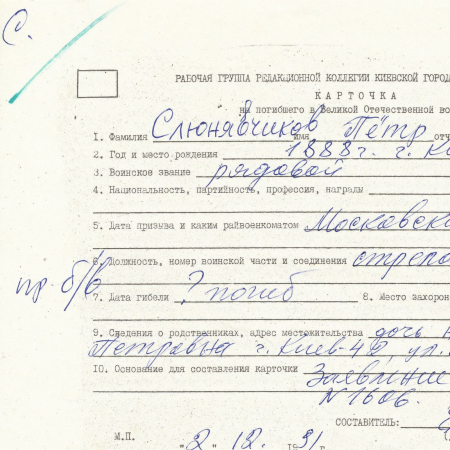 С.
РАБОЧАЯ ГРУППА РЕДАКЦИОННОЙ КОЛЛЕГИИ КИЕВСКОЙ ГОРОД
КАРТОЧКА
на погибшего в Великой Отечественной во
1. Фамилия Слюнявчиков имя Пётр отч
2. Год и место рождения 1888 г. г. Ки
3. Воинское звание рядовой
4. Национальность, партийность, профессия, награды
5. Дата призыва и каким райвоенкоматом Московски
6. Должность, номер воинской части и соединения стрело
пр. б/в
7. Дата гибели ? погиб 8. Место захорон
9. Сведения о родственниках, адрес местожительства дочь
Петровна г. Киев-42, ул.
10. Основание для составления карточки Заявление
N 1606.
СОСТАВИТЕЛЬ:
М.П.
"2" 12. 1991 г.